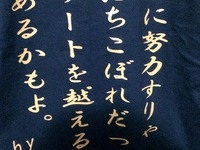 に努力すりゃ
ちこぼれだっ
ートを越える
あるかもよ。
by